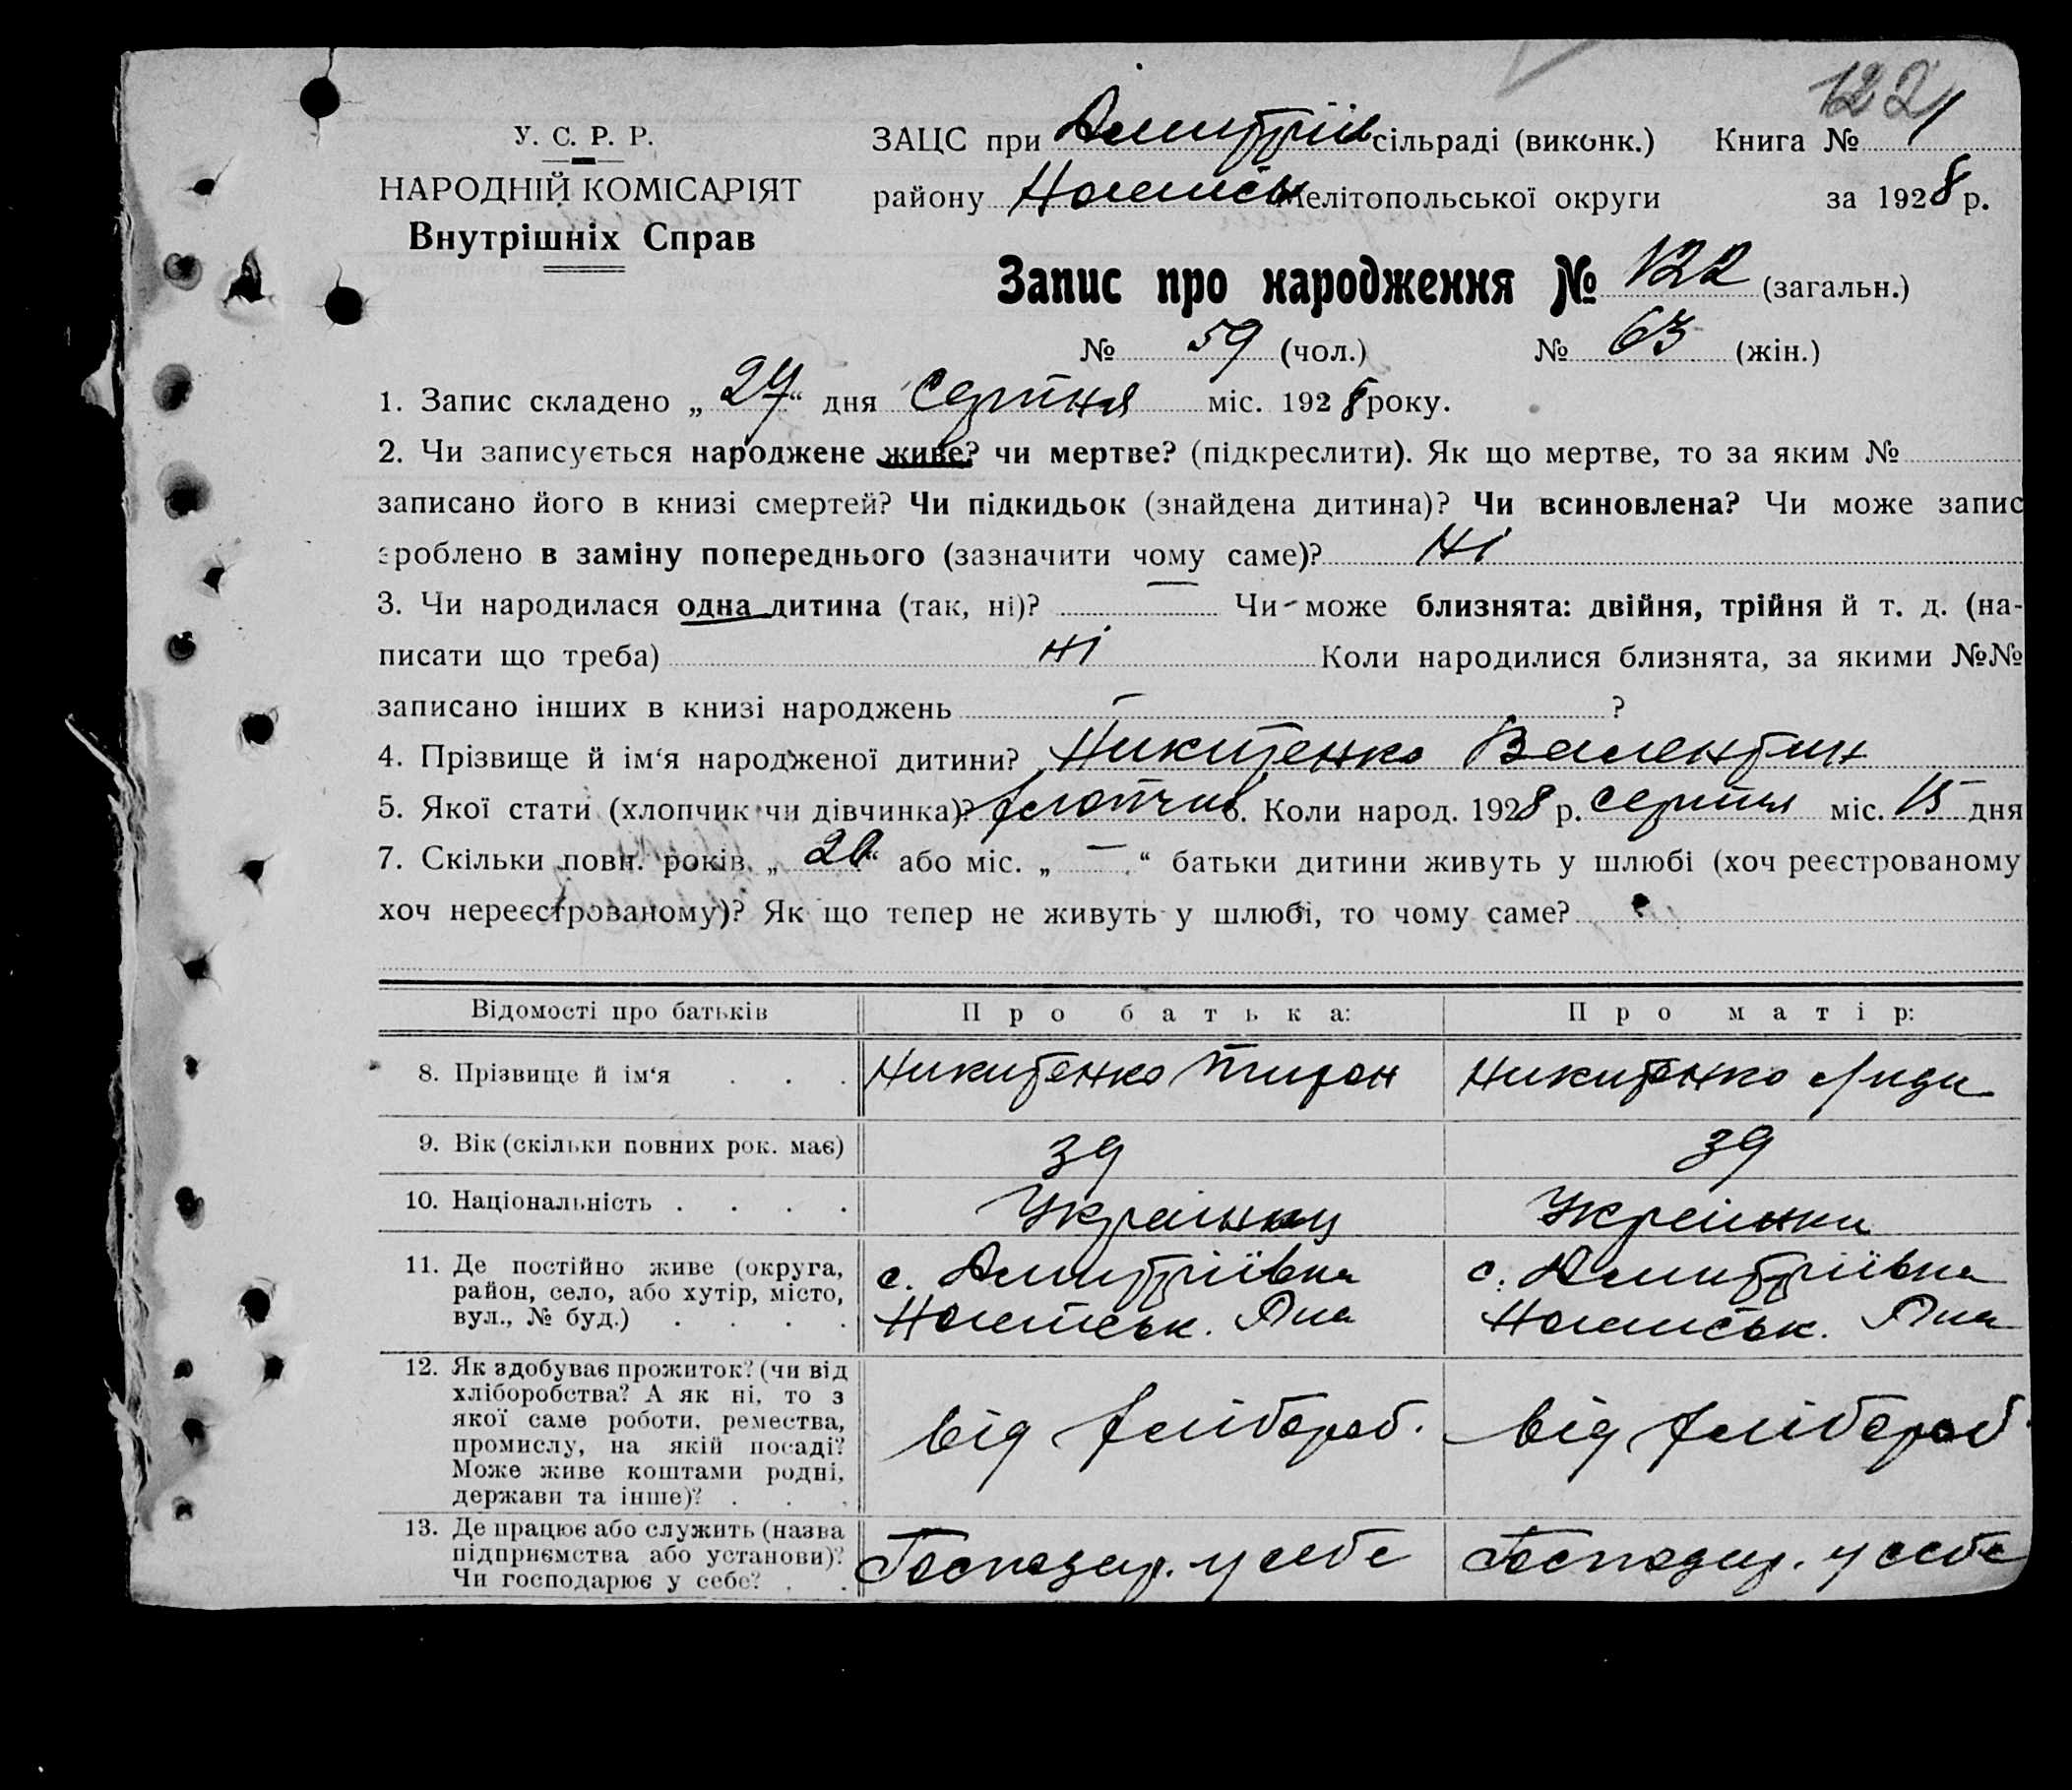 122
У. С. Р. Р.
НАРОДНІЙ КОМІСАРІЯТ
Внутрішніх Справ
ЗАЦС при Дмитріїв сільраді (виконк.) Книга № 1
району Мелітопольської округи за 1928 р.
Запис про народження № 122 (загальн.)
№ 59 (чол.) № 63 (жін.)
1. Запис складено „ “ дня Серпня міс. 1928 року.
2. Чи записується народжене живе? чи мертве? (підкреслити). Як що мертве, то за яким №
записано його в книзі смертей? Чи підкидьок (знайдена дитина)? Чи всиновлена? Чи може запис
зроблено в заміну попереднього (зазначити чому саме)? Ні
3. Чи народилася одна дитина (так, ні)? — Чи може близнята: двійня, трійня й т. д. (на-
писати що треба) ні Коли народилися близнята, за якими №№
записано інших в книзі народжень — ?
4. Прізвище й ім‘я народженої дитини? Никитенко Валентин
5. Якої стати (хлопчик чи дівчинка)? хлопчик 6. Коли народ. 1928 р. серпня міс. 15 дня
7. Скільки повн. років „ 20 “ або міс. „ — “ батьки дитини живуть у шлюбі (хоч реєстрованому
хоч нереєстрованому)? Як що тепер не живуть у шлюбі, то чому саме?
Відомості про батьків Про батька: Про матір:
8. Прізвище й ім‘я . . . Никитенко Никитенко Лиди
9. Вік (скільки повних рок. має) 39 39
10. Національність . . . . Українец Українка
11. Де постійно живе (округа, с. Дмитріївка с. Дмитріївка
район, село, або хутір, місто,
вул., № буд.) . . . .
12. Як здобуває прожиток? (чи від
хліборобства? А як ні, то з
якої саме роботи, ремества, від хлібороб. від хлібороб.
промислу, на якій посаді?
Може живе коштами родні,
держави та інше)? . . .
13. Де працює або служить (назва
підприємства або установи)? Господар. у себе Господар. у себе
Чи господарює у себе? . .